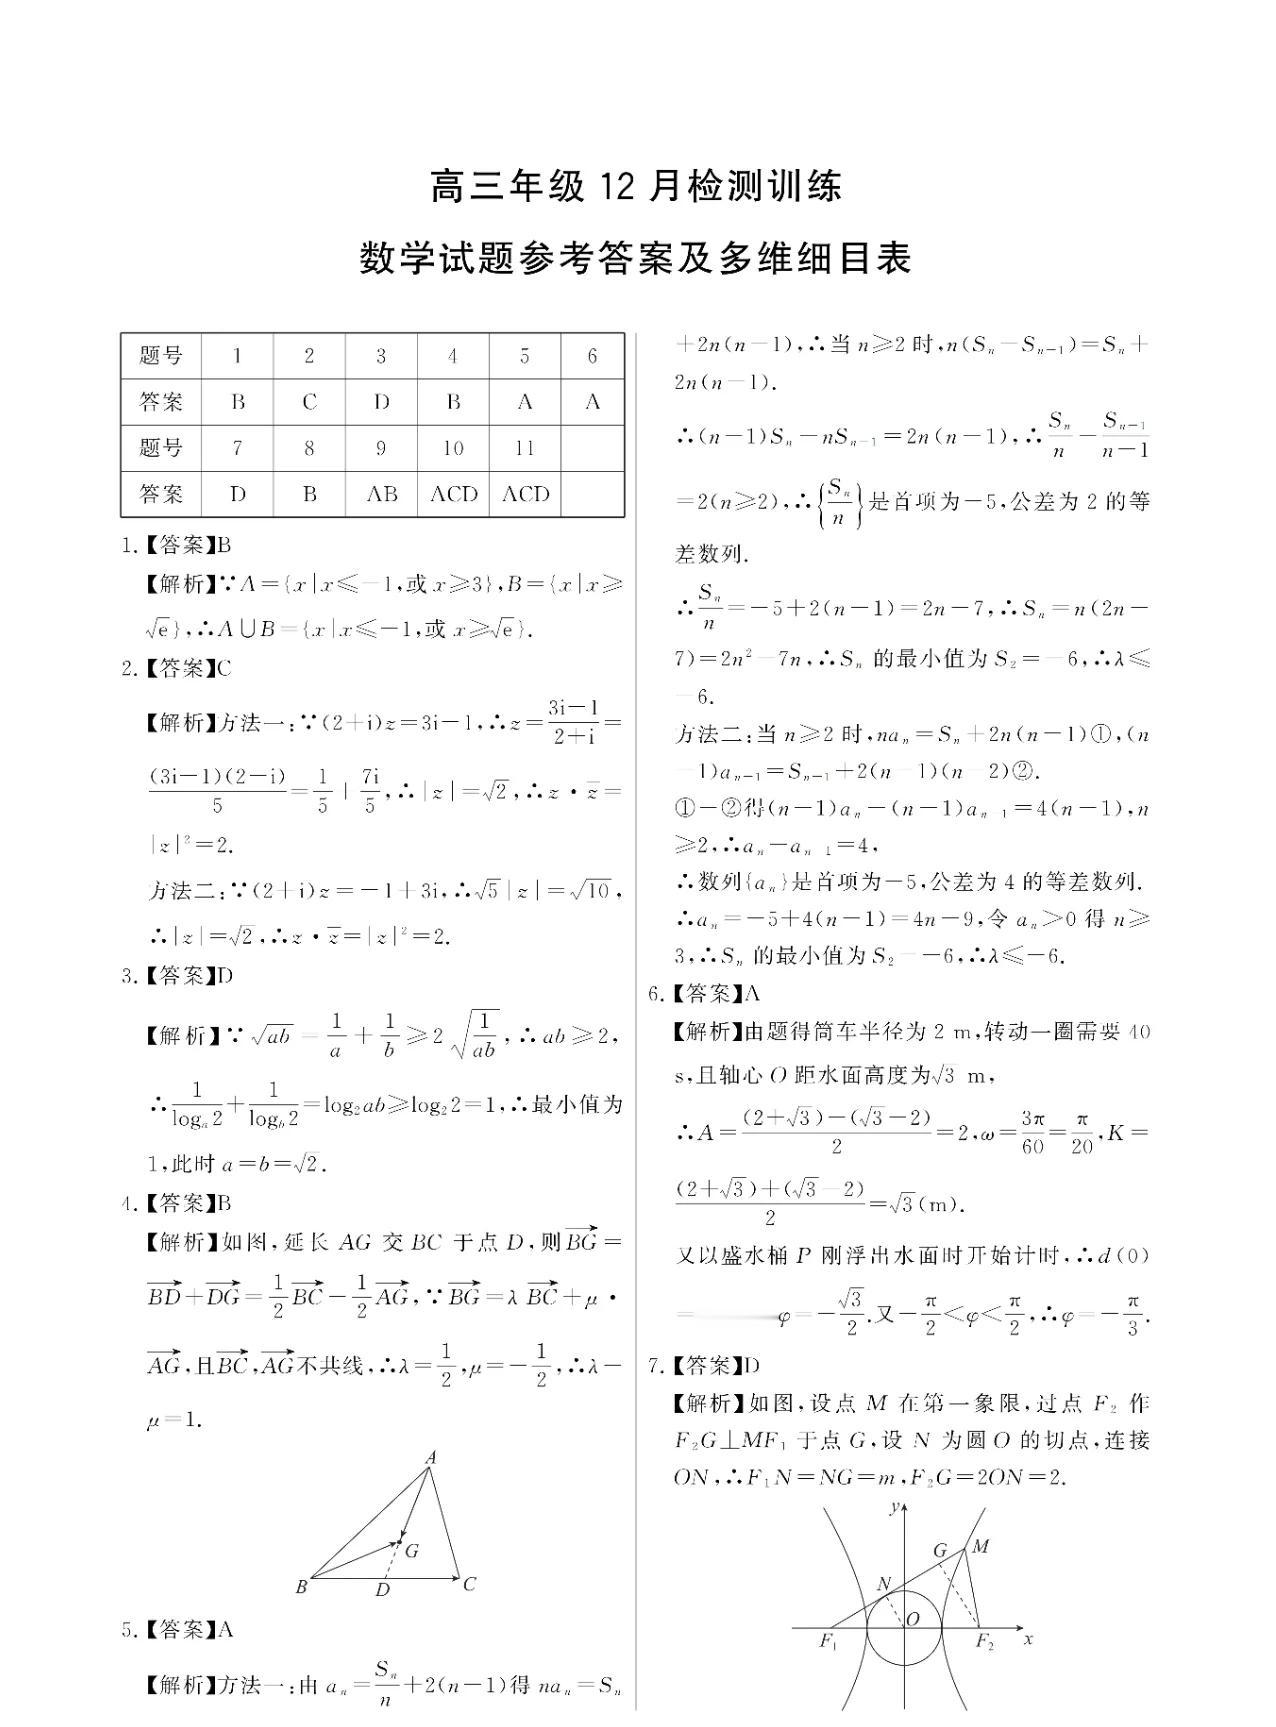 高三年级 12 月检测训练
数学试题参考答案及多维细目表
题号 1 2 3 4 5 6
答案 B C D B A A
题号 7 8 9 10 11
答案 D B AB ACD ACD
1.【答案】B
【解析】∵A={x|x≤-1,或x≥3},B={x|x≥
√e},∴A∪B={x|x≤-1,或x≥√e}.
2.【答案】C
【解析】方法一:∵(2+i)z=3i-1,∴z=(3i-1)/(2+i)=
(3i-1)(2-i)/5=1/5+7i/5,∴|z|=√2,∴z·z̅=
|z|²=2.
方法二:∵(2+i)z=-1+3i,∴√5|z|=√10,
∴|z|=√2,∴z·z̅=|z|²=2.
3.【答案】D
【解析】∵√ab=1/a+1/b≥2√(1/ab),∴ab≥2,
∴1/logₐ2+1/log_b2=log₂ab≥log₂2=1,∴最小值为
1,此时a=b=√2.
4.【答案】B
【解析】如图,延长 AG 交 BC 于点 D,则BG→=
BD→+DG→=1/2BC→-1/2AG→,∵BG→=λBC→+μ·
AG→,且BC→,AG→不共线,∴λ=1/2,μ=-1/2,∴λ-
μ=1.
A
G
B
D
C
5.【答案】A
【解析】方法一:由 aₙ=Sₙ/n+2(n-1)得 naₙ=Sₙ
+2n(n-1),∴当n≥2时,n(Sₙ-Sₙ₋₁)=Sₙ+
2n(n-1).
∴(n-1)Sₙ-nSₙ₋₁=2n(n-1),∴Sₙ/n-Sₙ₋₁/(n-1)
=2(n≥2),∴{Sₙ/n}是首项为-5,公差为2的等
差数列.
∴Sₙ/n=-5+2(n-1)=2n-7,∴Sₙ=n(2n-
7)=2n²-7n,∴Sₙ的最小值为S₂=-6,∴λ≤
-6.
方法二:当n≥2时,naₙ=Sₙ+2n(n-1)①,(n
-1)aₙ₋₁=Sₙ₋₁+2(n-1)(n-2)②.
①-②得(n-1)aₙ-(n-1)aₙ₋₁=4(n-1),n
≥2,∴aₙ-aₙ₋₁=4,
∴数列{aₙ}是首项为-5,公差为4的等差数列.
∴aₙ=-5+4(n-1)=4n-9,令aₙ>0得n≥
3,∴Sₙ的最小值为S₂=-6,∴λ≤-6.
6.【答案】A
【解析】由题得筒车半径为2 m,转动一圈需要40
s,且轴心O距水面高度为√3 m,
∴A=((2+√3)-(√3-2))/2=2,ω=3π/60=π/20,K=
((2+√3)+(√3-2))/2=√3(m).
又以盛水桶P刚浮出水面时开始计时,∴d(0)
= φ=-√3/2.又-π/2<φ<π/2,∴φ=-π/3.
7.【答案】D
【解析】如图,设点 M 在第一象限,过点 F₂ 作
F₂G⊥MF₁于点G,设 N 为圆O的切点,连接
ON,∴F₁N=NG=m,F₂G=2ON=2.
y
G
M
N
O
F₁
F₂
x